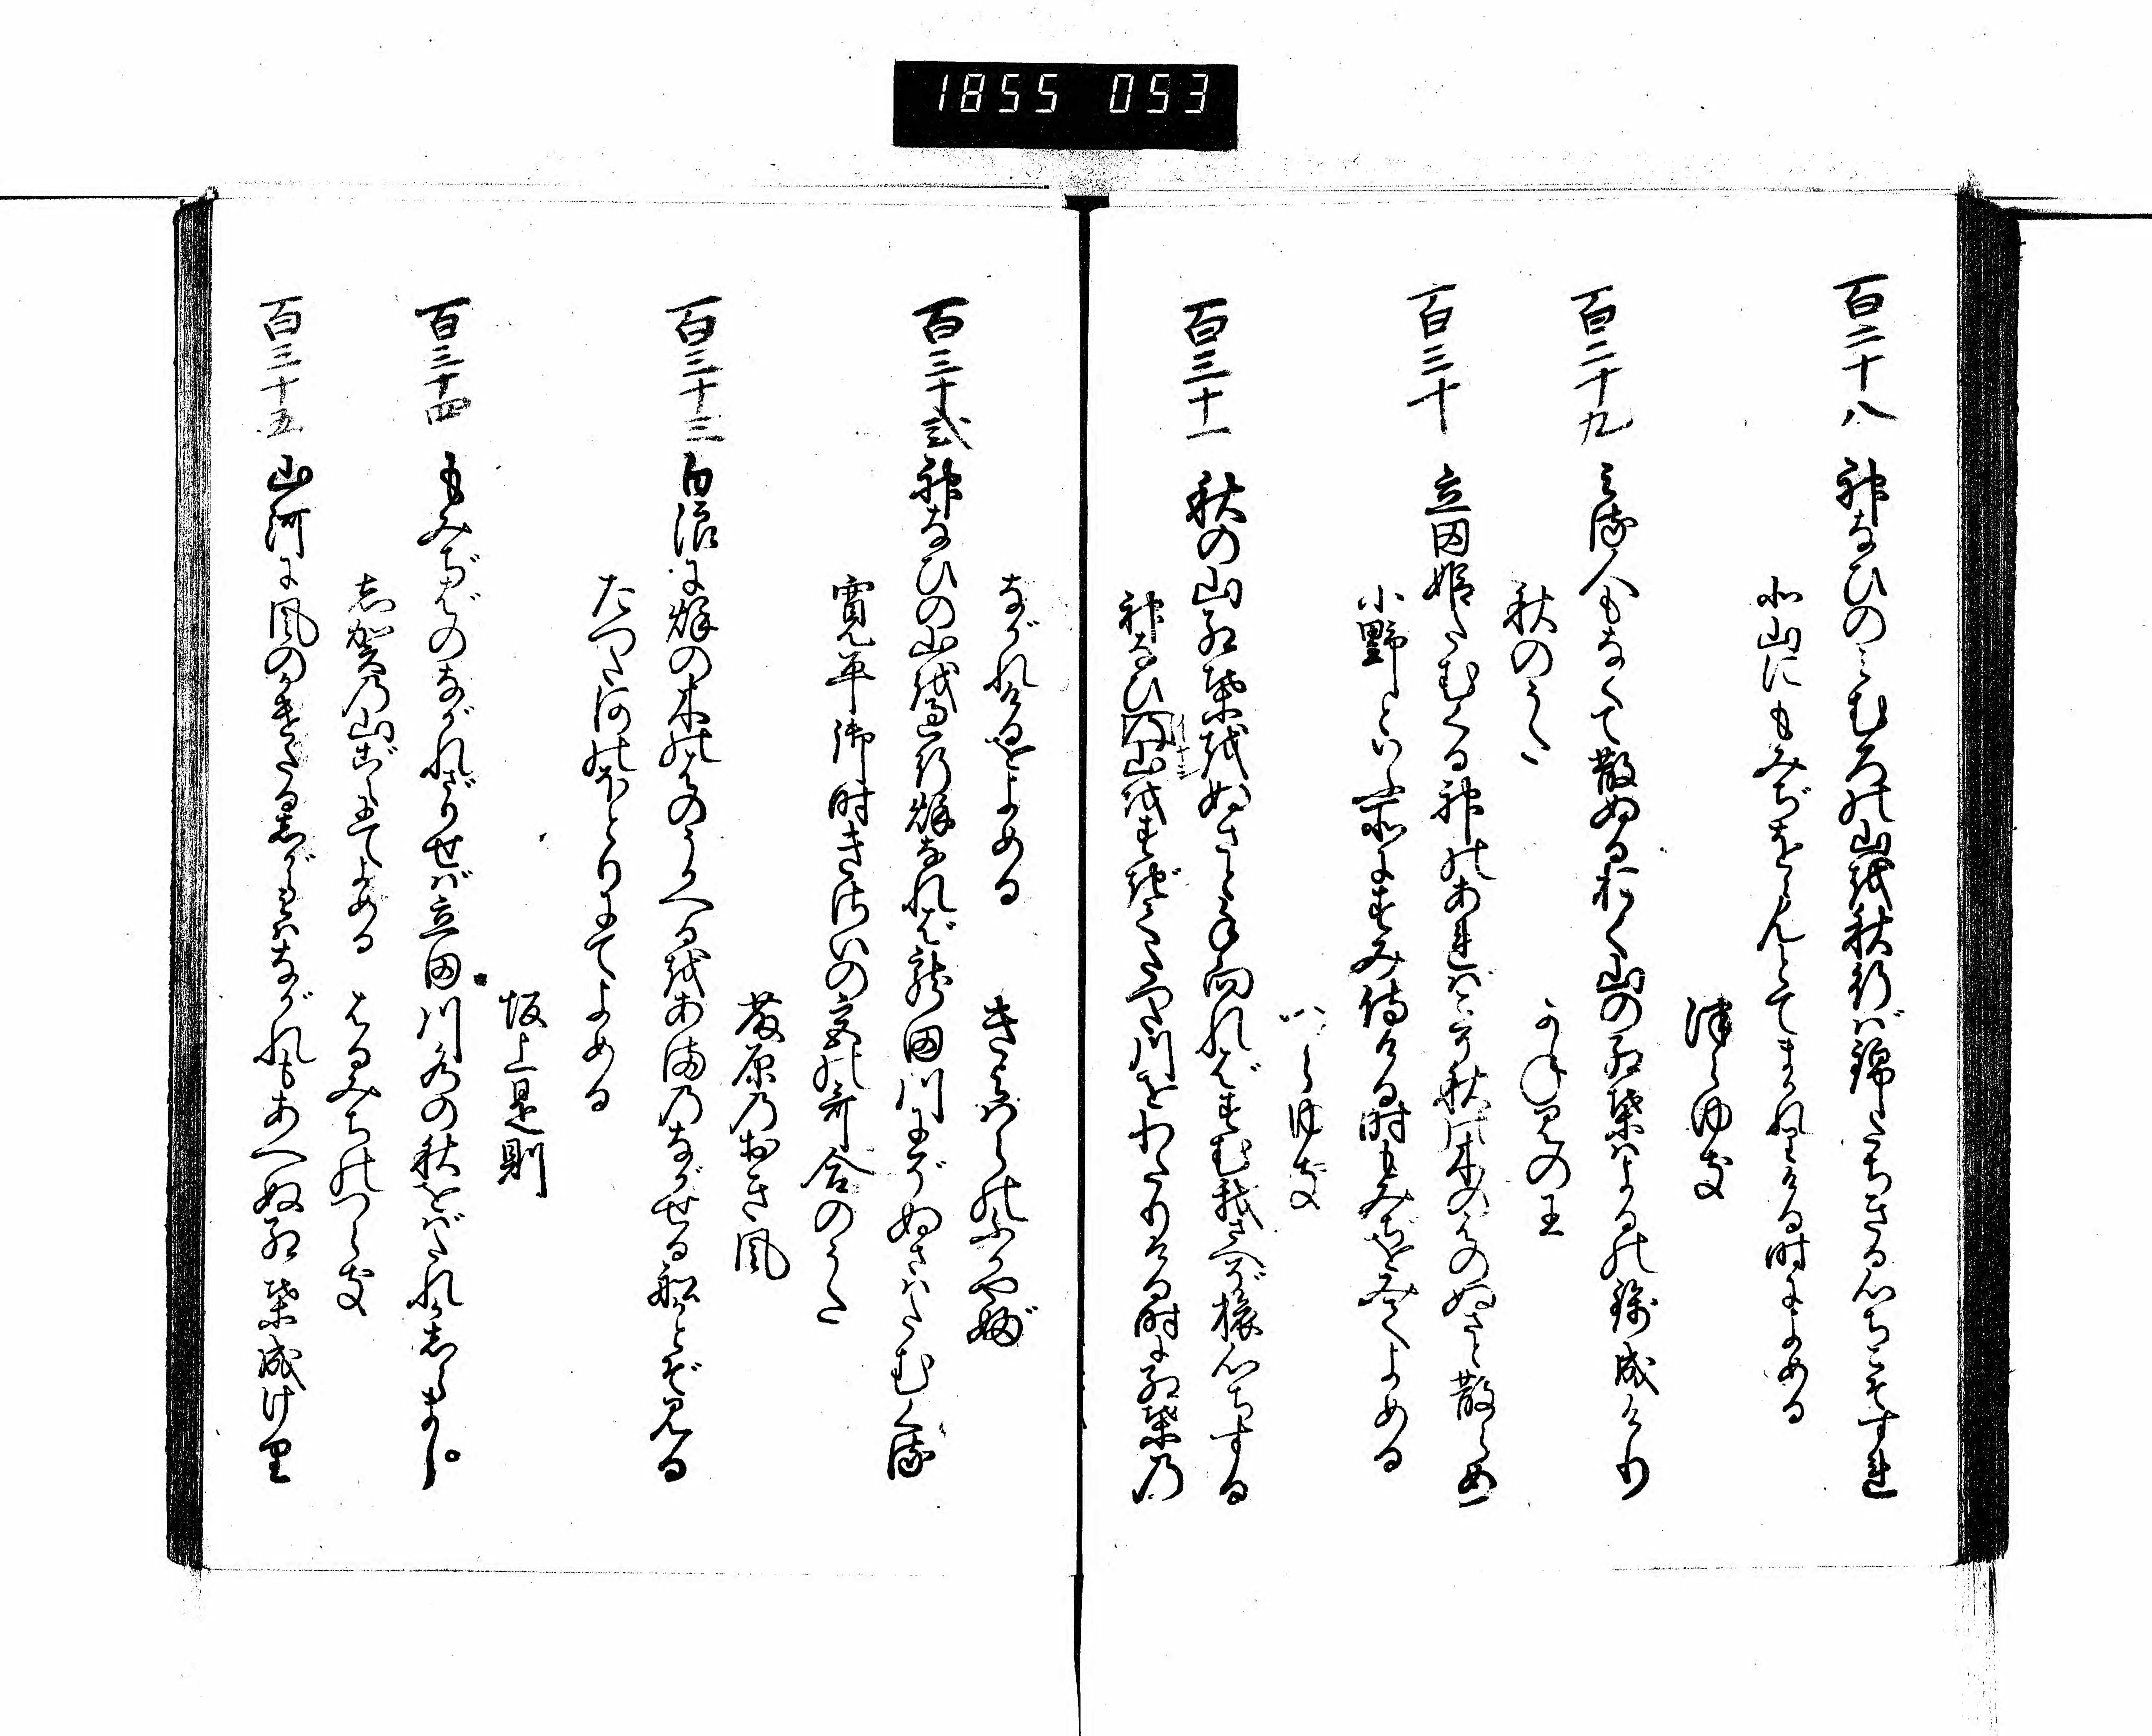 1855 053
百二十八 神なひのみむろの山越秋行ば錦たちきる心ちこそすれ
北山にもみぢをらんとてまかれりける時によめる
つらゆき
百二十九 みる人もなくて散ぬるおく山の紅葉はよるの錦成けり
秋のうた
かねみの王
百三十 立田姫たむくる神のあればこそ秋の木のはのぬさと散らめ
小野といふ所にすみ侍ける時もみぢをみてよめる
つらゆき
百三十一 秋の山紅葉越ぬさと手向ればすむ我さへぞ旅心ちする
神なひの山越すぎてたつた川をわたりける時に紅葉乃
ながれけるをよめる
きよはらのふかやぶ
百三十弐 神なひの山越過行秋なれば龍田川にぞぬさはたむくる
寛平御時きさいの宮の哥合のうた
藤原乃おき風
百三十三 白浪に秋の木のはのうかべる越あま乃ながせる船かとぞ見る
たつた河のほとりにてよめる
坂上是則
百三十四 もみぢばのながれざりせば立田川水の秋をばたれかしらまし
志賀乃山ごえにてよめる
はるみちのつらき
百三十五 山河に風のかけたるしがらみはながれもあへぬ紅葉成け里